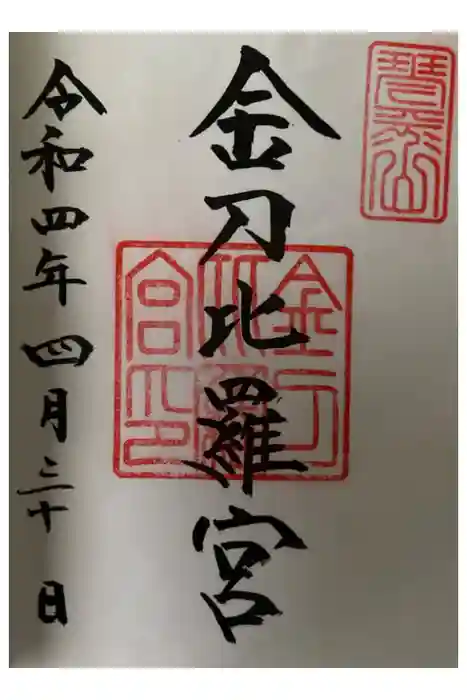 琴泰山
金刀比羅宮
金刀比羅宮印
令和四年四月三十日